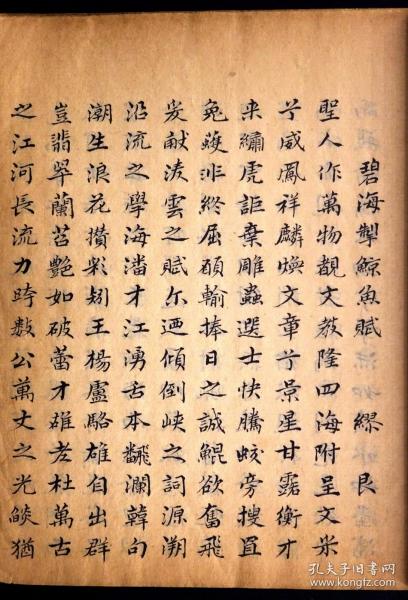 碧海掣鯨魚賦 繆艮
聖人作萬物覩文教隆四海附呈文采
兮威鳳祥麟煥文章兮景星甘露衡才
來繡虎詎棄雕蟲選士快騰蛟旁搜罝
兔蘐非終屈願輸捧日之誠鯤欲奮飛
爰献淩雲之賦尓廼傾倒峽之詞源溯
沿流之學海潘才江湧舌本翻瀾韓句
潮生浪花攢彩矧王楊盧駱雄自出群
豈翡翠蘭苕艷如破蕾才雄老杜萬古
之江河長流力跨數公萬丈之光燄猶
孔夫子旧书网